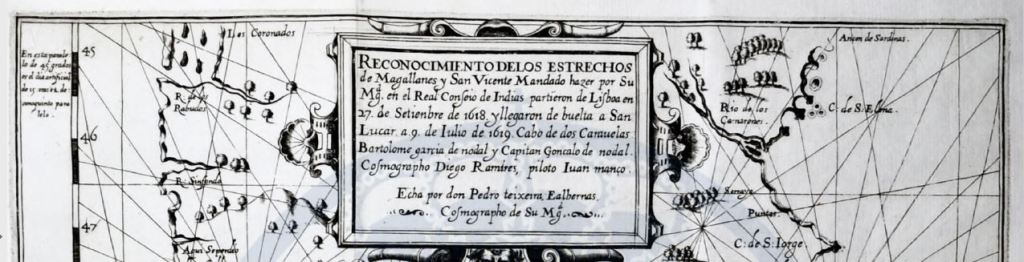 Los Coronados
Ancon de Sardinas.
En esta parale
lo de 45 grados
es el dia artificial
45
RECONOCIMIENTO DE LOS ESTRECHOS
de Magallanes y San Vicente Mandado hazer por Su
Mg. en el Real Conseio de Indias partieron de Lisboa en
27. de Setienbre de 1618. y llegaron de buelta a San
Lucar a.9. de Iulio de 1619. Cabo de dos Carauelas
Bartolome garcia de nodal y Capitan Goncalo de nodal.
Cosmographo Diego Ramires, piloto Iuan manço.
Echa por don Pedro teixeira Ealbernas.
Cosmographo de Su Mg.
R. de los
Rabudos
Rio de los
Camarones.
C. de S. Elena.
46
R. Sinfondo
Punta
47
C. de S. Iorge
Aqui Seperdio